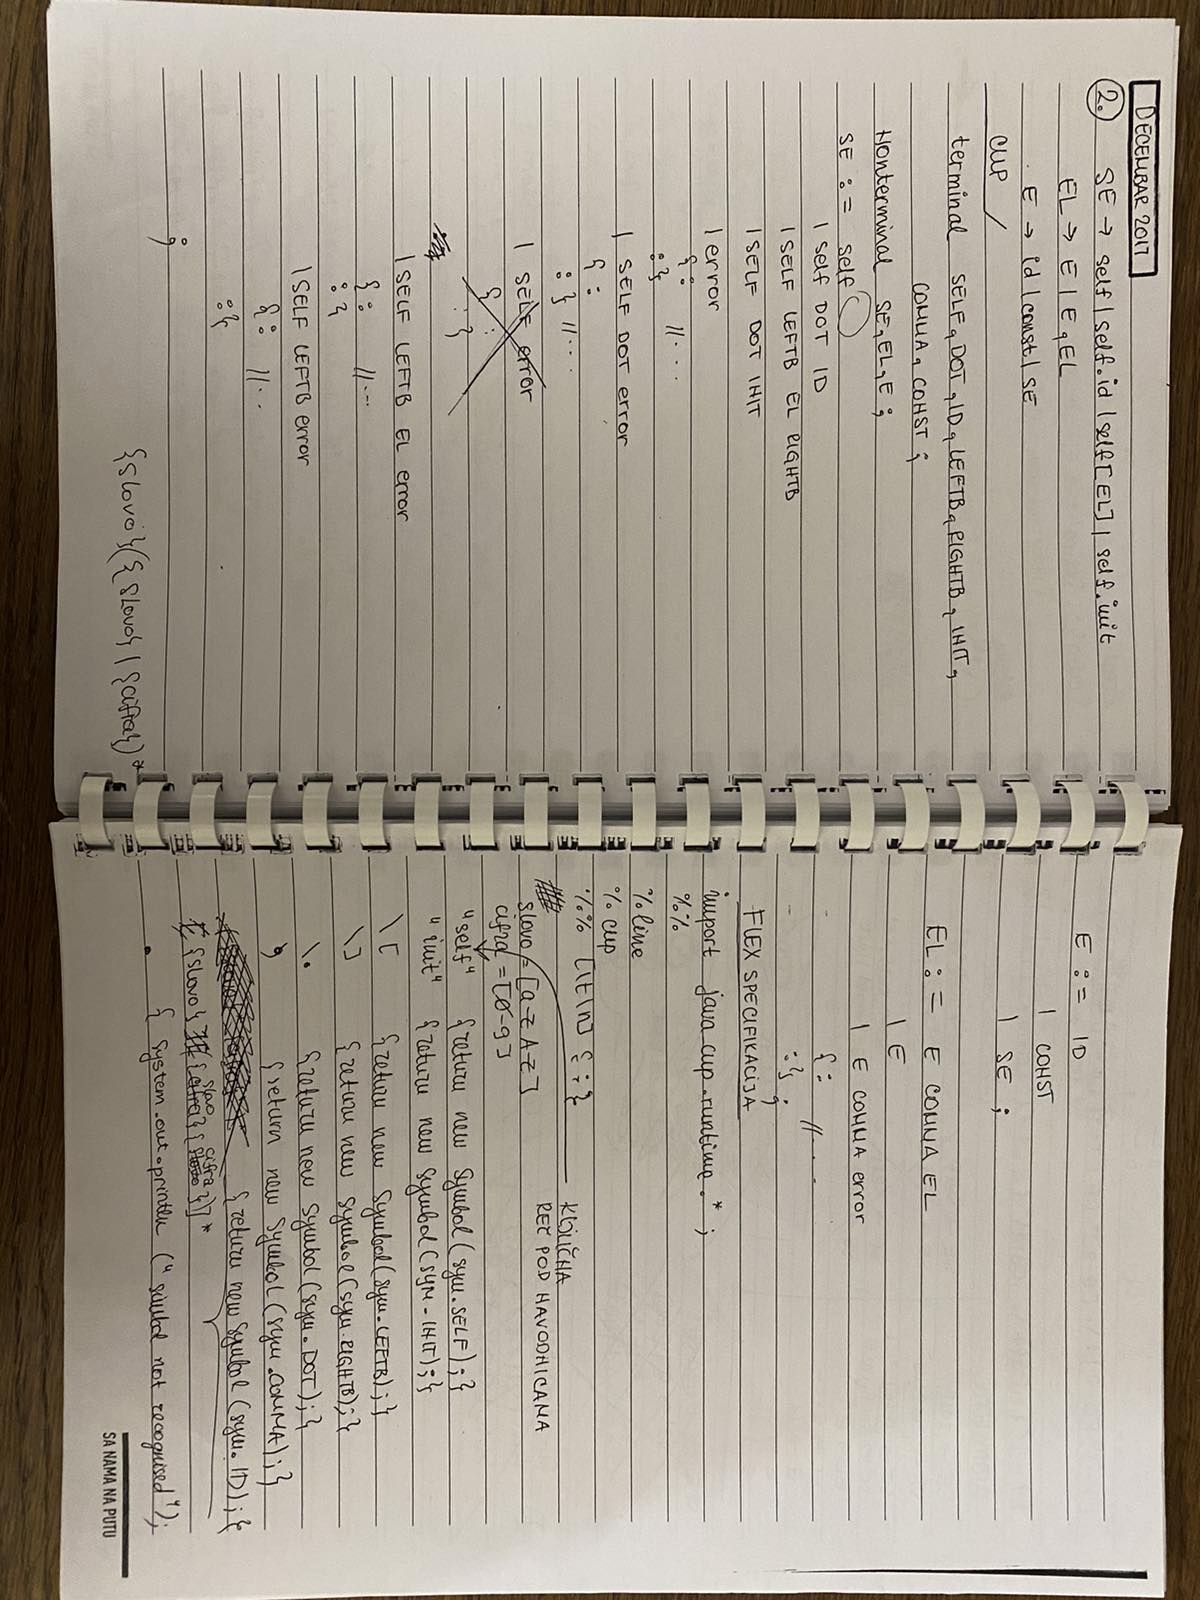 DECEMBAR 2017
2. SE → self | self.id | self[EL] | self.init
EL → E | E, EL
E → id | const | SE
CUP
terminal SELF, DOT, ID, LEFTB, RIGHTB, INIT,
COMMA, CONST ;
Nonterminal SE, EL, E ;
SE : = self
| self DOT ID
| SELF LEFTB EL RIGHTB
| SELF DOT INIT
| error
{: //...
:}
| SELF DOT error
{:
:} //...
| SELF error
{ :
: }
| SELF LEFTB EL error
{: //...
: }
| SELF LEFTB error
{: //...
:}
;
{slovo}({slovo} | {cifra})*
E : = ID
| CONST
| SE ;
EL : = E COMMA EL
| E
| E COMMA error
{: //....
:} ;
FLEX SPECIFIKACIJA
import java_cup.runtime.* ;
%%
%line
%cup
%% [\t\n] {;}
KLJUČNA
REČ POD NAVODNICAMA
slovo = [a-z A-Z]
cifra = [0-9]
"self" {return new Symbol(sym.SELF);}
"init" {return new Symbol(sym.INIT);}
\[ {return new Symbol(sym.LEFTB);}
\] {return new Symbol(sym.RIGHTB);}
\. {return new Symbol(sym.DOT);}
, {return new Symbol(sym.COMMA);}
{return new Symbol(sym.ID);}
{slovo} slovo cifra *
. { System.out.println("simbol not recognised");
SA NAMA NA PUTU